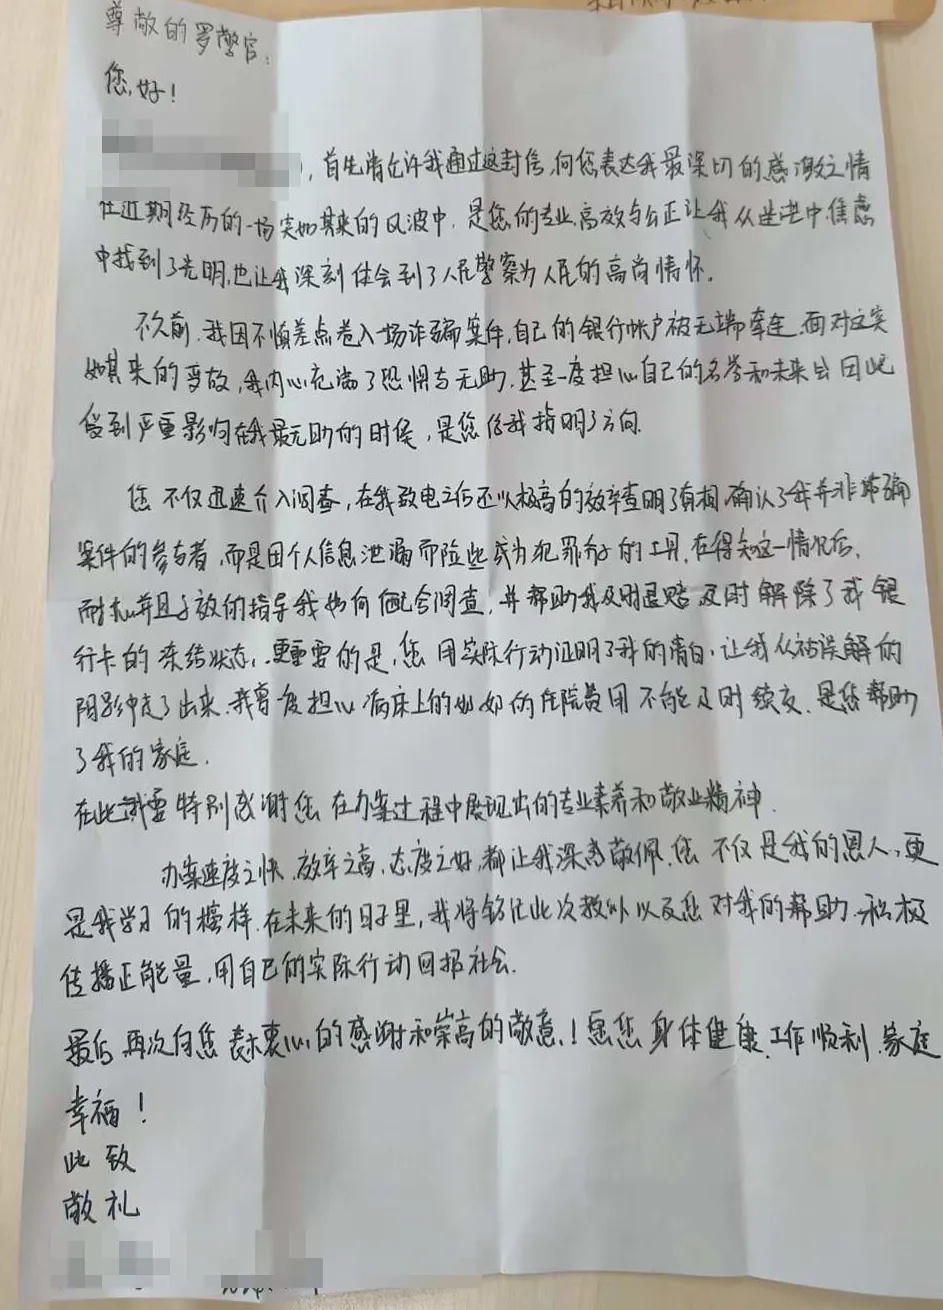 尊敬的罗警官：
您好！
，首先请允许我通过这封信，向您表达我最深切的感激之情
在近期经历的一场突如其来的风波中，是您的专业、高效与公正让我从迷茫中焦虑
中找到了光明，也让我深刻体会到了人民警察为人民的高尚情怀。
不久前，我因不慎差点卷入一场诈骗案件，自己的银行帐户被无端牵连，面对这突
如其来的变故，我内心充满了恐惧与无助，甚至一度担心自己的名誉和未来会因此
受到严重影响在我最无助的时候，是您给我指明了方向.
您不仅迅速介入调查，在我致电之后还以极高的效率查明了真相，确认了我并非诈骗
案件的参与者，而是因个人信息泄漏而险些成为犯罪分子的工具，在得知这一情况后，
耐心并且的指导我如何配合调查，并帮助我及时退赔及时解除了我银
行卡的冻结状态，更重要的是，您用实际行动证明了我的清白，让我从被误解的
阴影中走了出来，我曾一度担心病床上的奶奶的住院费用不能及时续交，是您帮助
了我的家庭.
在此我要特别感谢您在办案过程中展现出的专业素养和敬业精神.
办案速度之快，效率之高，态度之好，都让我深感敬佩，您不仅是我的恩人，更
是我学习的榜样，在未来的日子里，我将铭记此次教训以及您对我的帮助，积极
传播正能量，用自己的实际行动回报社会.
最后再次向您表示衷心的感谢和崇高的敬意！愿您身体健康、工作顺利、家庭
幸福！
此致
敬礼